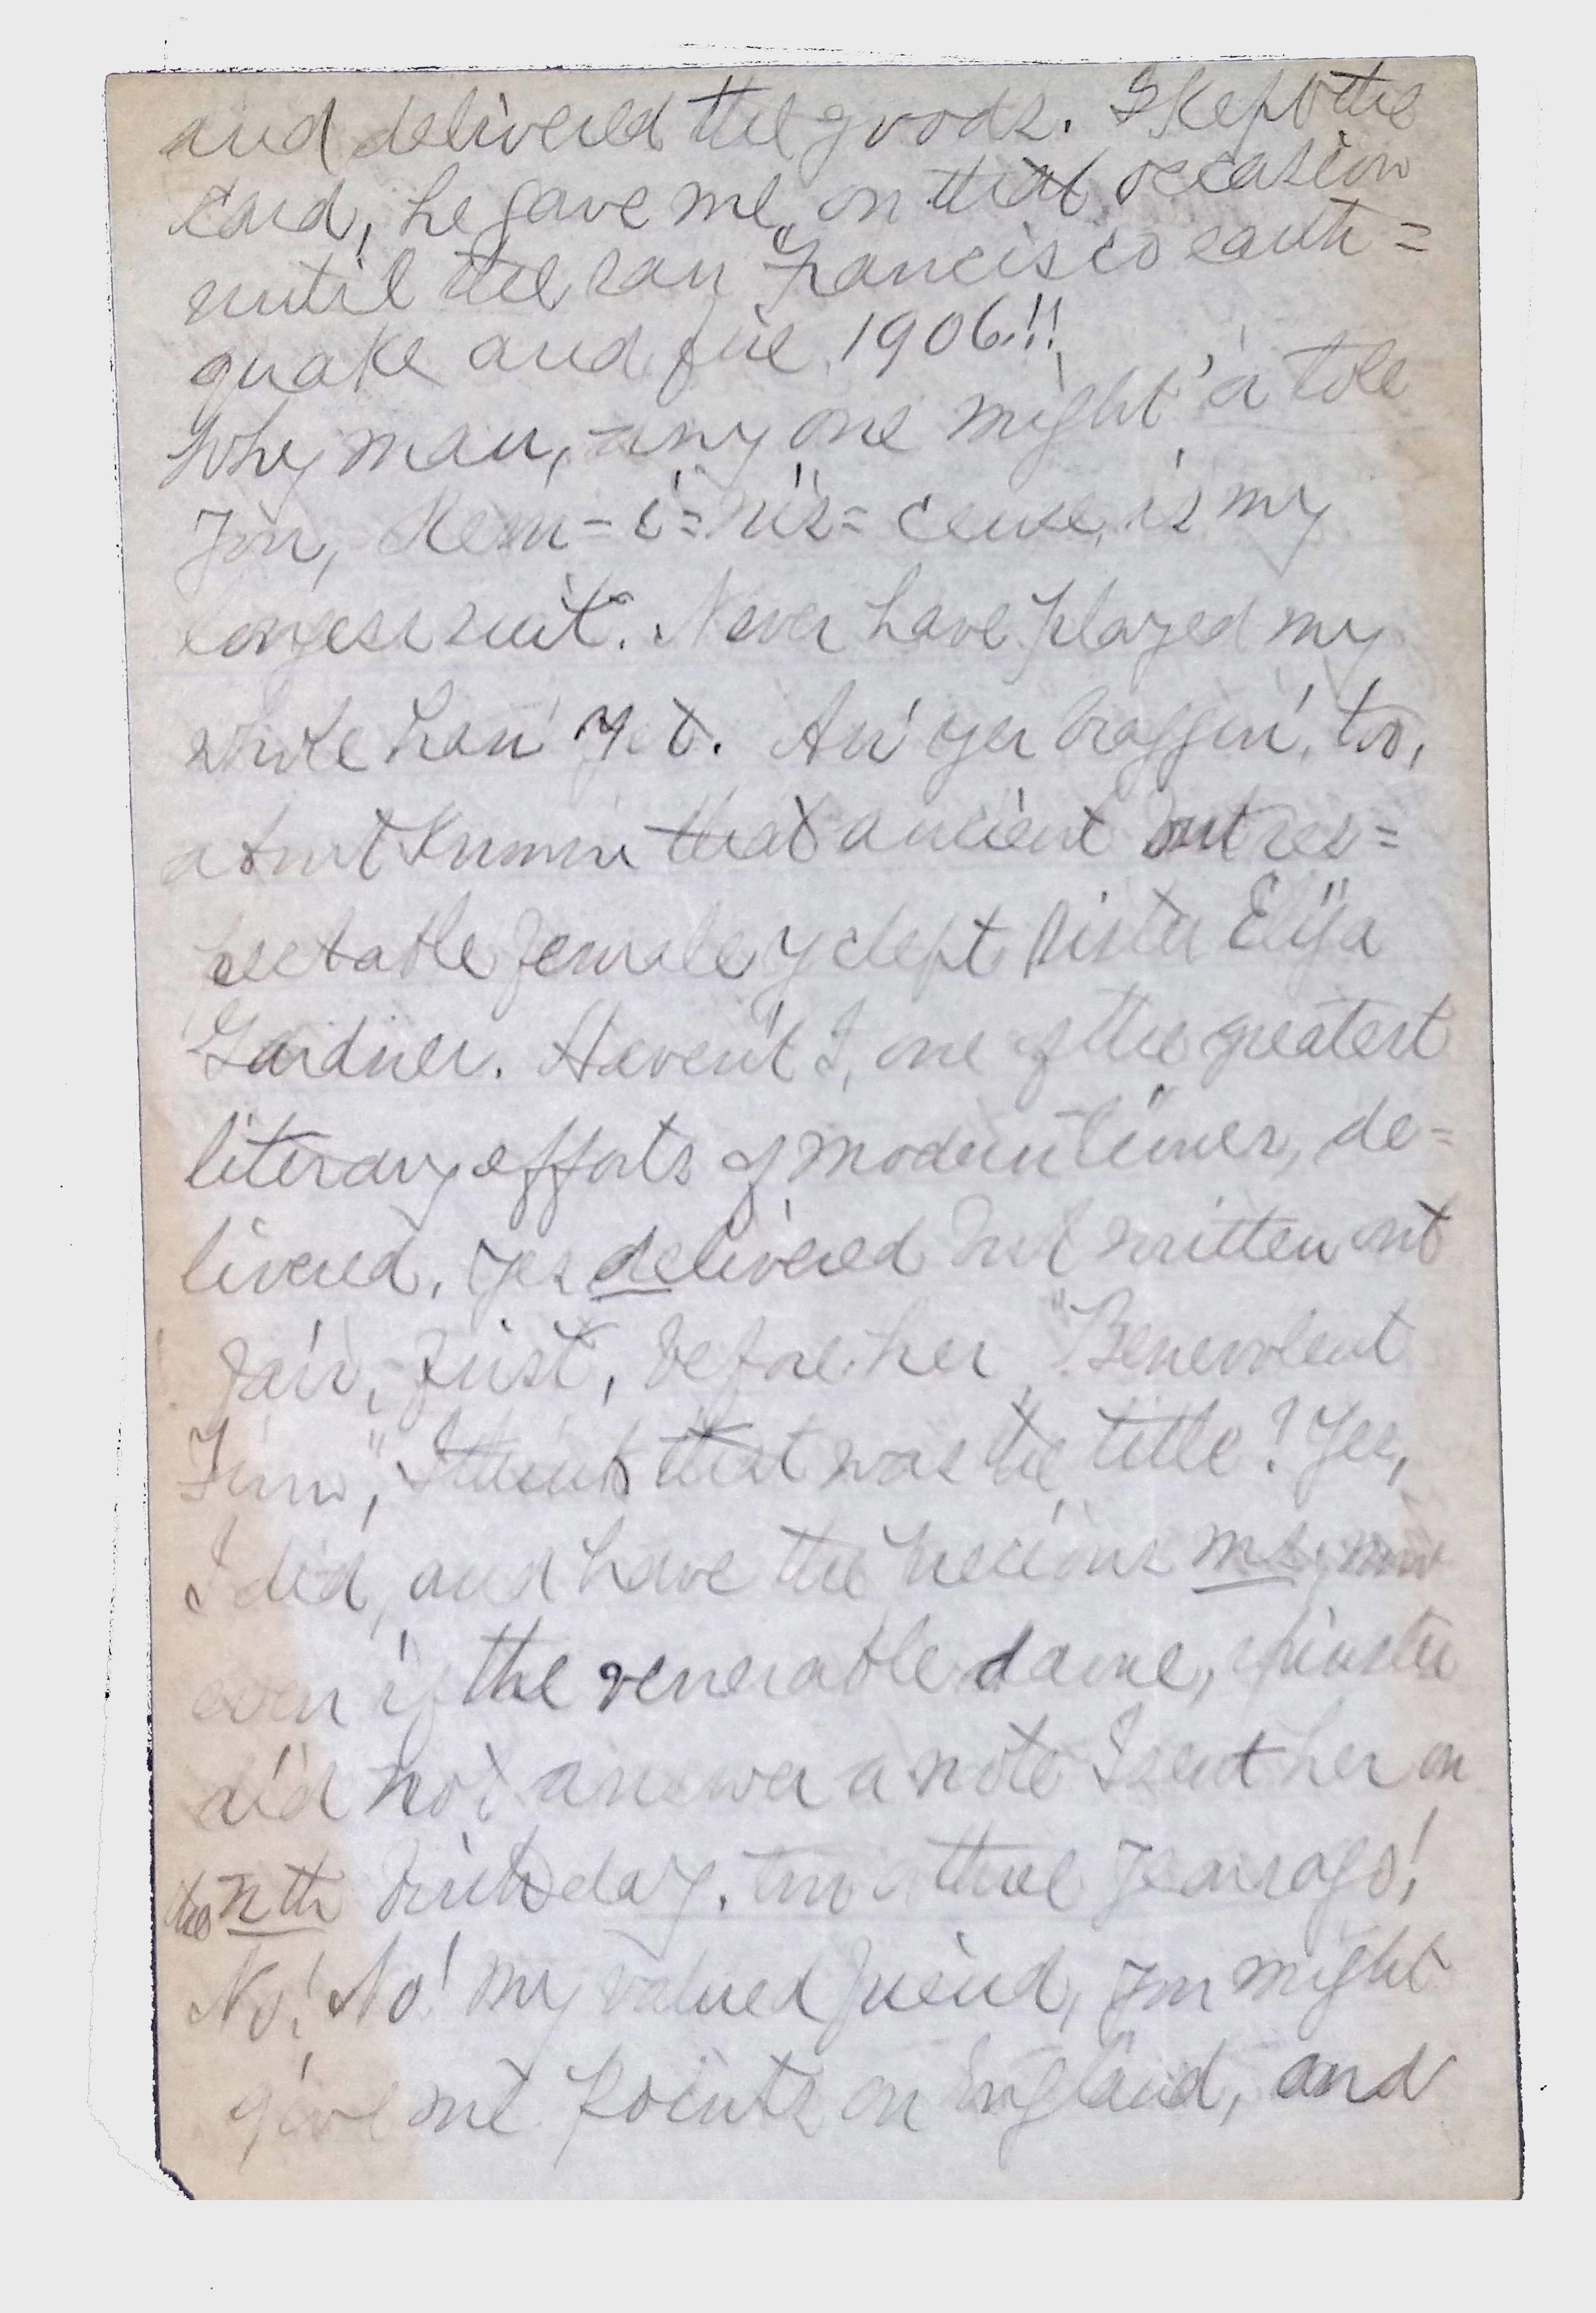 and delivered the goods. I kept the
card, he gave me, on that occasion
until the San Francisco earth=
quake and fire 1906!!
Why man, any one might 'a tole
you, Rem-i=nis=cense, is my
longes suit. Never have played my
whole han' yet. An' yer braggin', too,
about knowin that ancient but res=
pectable female yclept Sister Eliza
Gardner. Haven't I, one of the greatest
literary efforts of modern times, de=
livered, yes delivered but written out
fair, first, before her "Benevolent
Firm", I think that was the title? Yes,
I did, and have the precious ms, now
even if the venerable dame, spinster
did not answer a note I sent her on
the nth birthday, two or three years ago!
No! No! my valued friend, you might
give me points on England, and